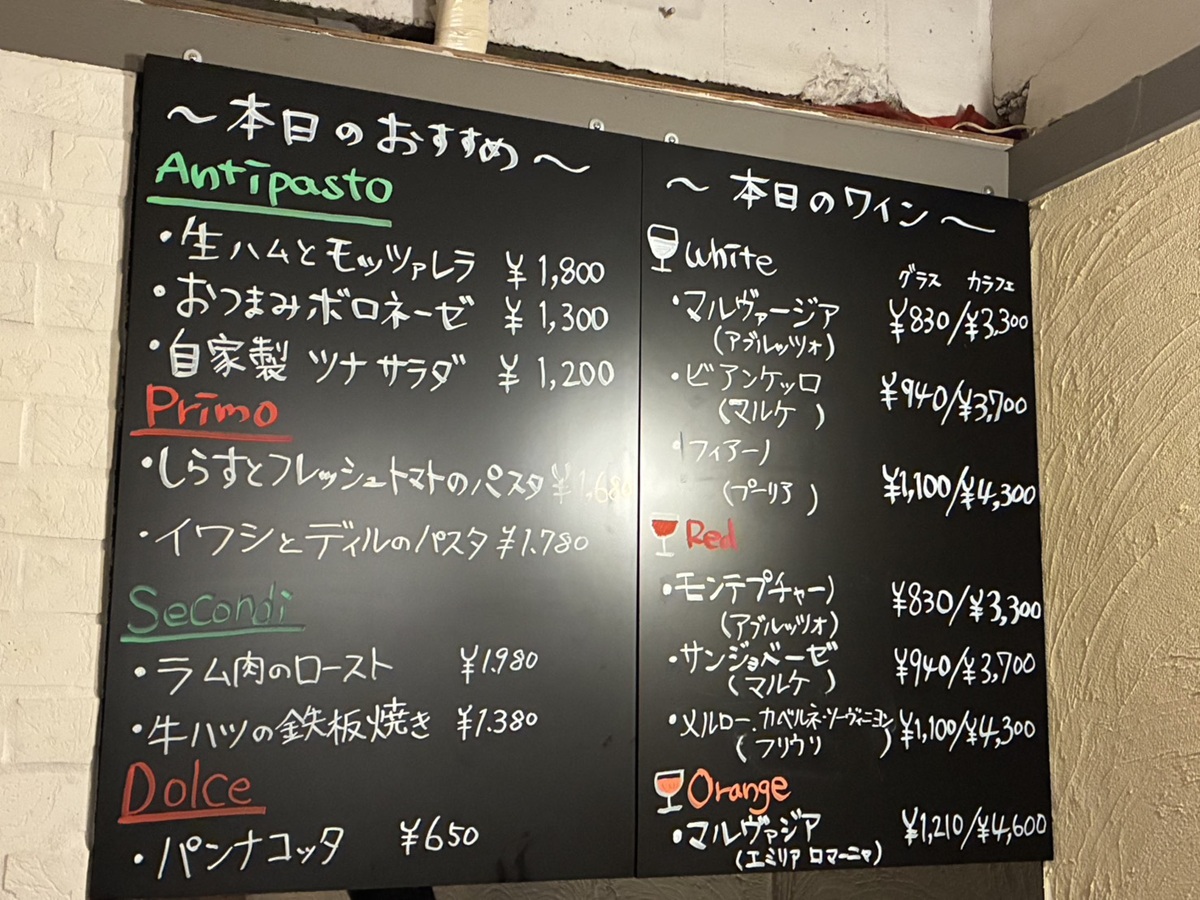 ～本日のおすすめ～
Antipasto
・生ハムとモッツァレラ ¥1,800
・おつまみボロネーゼ ¥1,300
・自家製 ツナサラダ ¥1,200
Primo
・しらすとフレッシュトマトのパスタ ¥1,680
・イワシとディルのパスタ ¥1.780
Secondi
・ラム肉のロースト ¥1.980
・牛ハツの鉄板焼き ¥1.380
Dolce
・パンナコッタ ¥650
～本日のワイン～
White
グラス カラフェ
・マルヴァージア ¥830/¥3,300
(アブルッツォ)
・ビアンケッロ ¥940/¥3,700
(マルケ)
・フィアーノ
(プーリア) ¥1,100/¥4,300
Red
・モンテプチャーノ ¥830/¥3,300
(アブルッツォ)
・サンジョベーゼ ¥940/¥3,700
(マルケ)
・メルロー.カベルネ・ソーヴィニヨン ¥1,100/¥4,300
(フリウリ)
Orange
・マルヴァジア ¥1,210/¥4,600
(エミリア ロマーニャ)